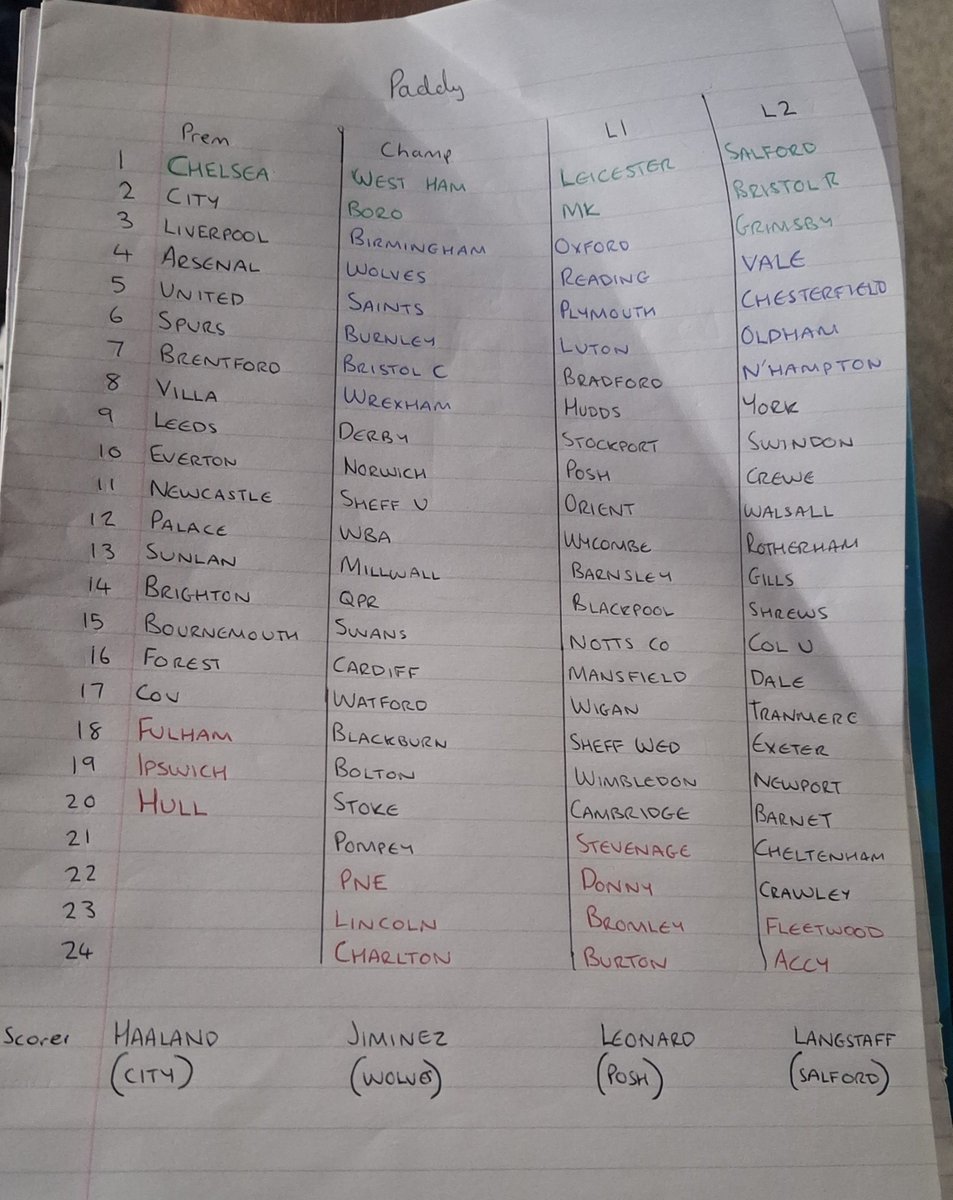 Paddy
Prem Champ L1 L2
1 CHELSEA WEST HAM LEICESTER SALFORD
2 CITY BORO MK BRISTOL R
3 LIVERPOOL BIRMINGHAM OXFORD GRIMSBY
4 ARSENAL WOLVES READING VALE
5 UNITED SAINTS PLYMOUTH CHESTERFIELD
6 SPURS BURNLEY LUTON OLDHAM
7 BRENTFORD BRISTOL C BRADFORD N'HAMPTON
8 VILLA WREXHAM HUDDS YORK
9 LEEDS DERBY STOCKPORT SWINDON
10 EVERTON NORWICH POSH CREWE
11 NEWCASTLE SHEFF U ORIENT WALSALL
12 PALACE WBA WYCOMBE ROTHERHAM
13 SUNLAN MILLWALL BARNSLEY GILLS
14 BRIGHTON QPR BLACKPOOL SHREWS
15 BOURNEMOUTH SWANS NOTTS CO COL U
16 FOREST CARDIFF MANSFIELD DALE
17 COV WATFORD WIGAN TRANMERE
18 FULHAM BLACKBURN SHEFF WED EXETER
19 IPSWICH BOLTON WIMBLEDON NEWPORT
20 HULL STOKE CAMBRIDGE BARNET
21 POMPEY STEVENAGE CHELTENHAM
22 PNE DONNY CRAWLEY
23 LINCOLN BROMLEY FLEETWOOD
24 CHARLTON BURTON ACCY
Scorer HAALAND JIMINEZ LEONARD LANGSTAFF
(CITY) (WOLVES) (POSH) (SALFORD)